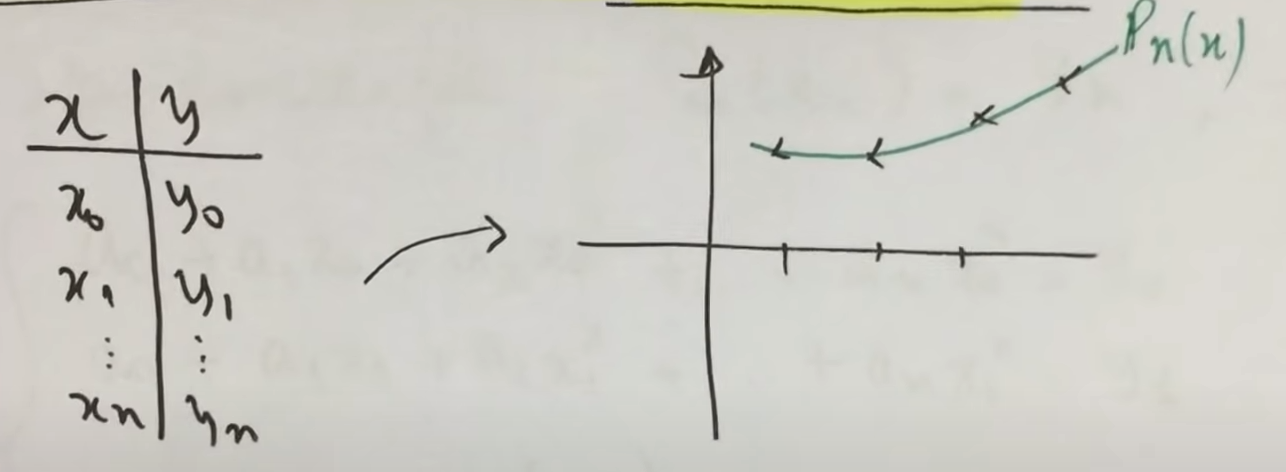 x y
x₀ y₀
x₁ y₁
⋮ ⋮
xn yn
Pn(x)